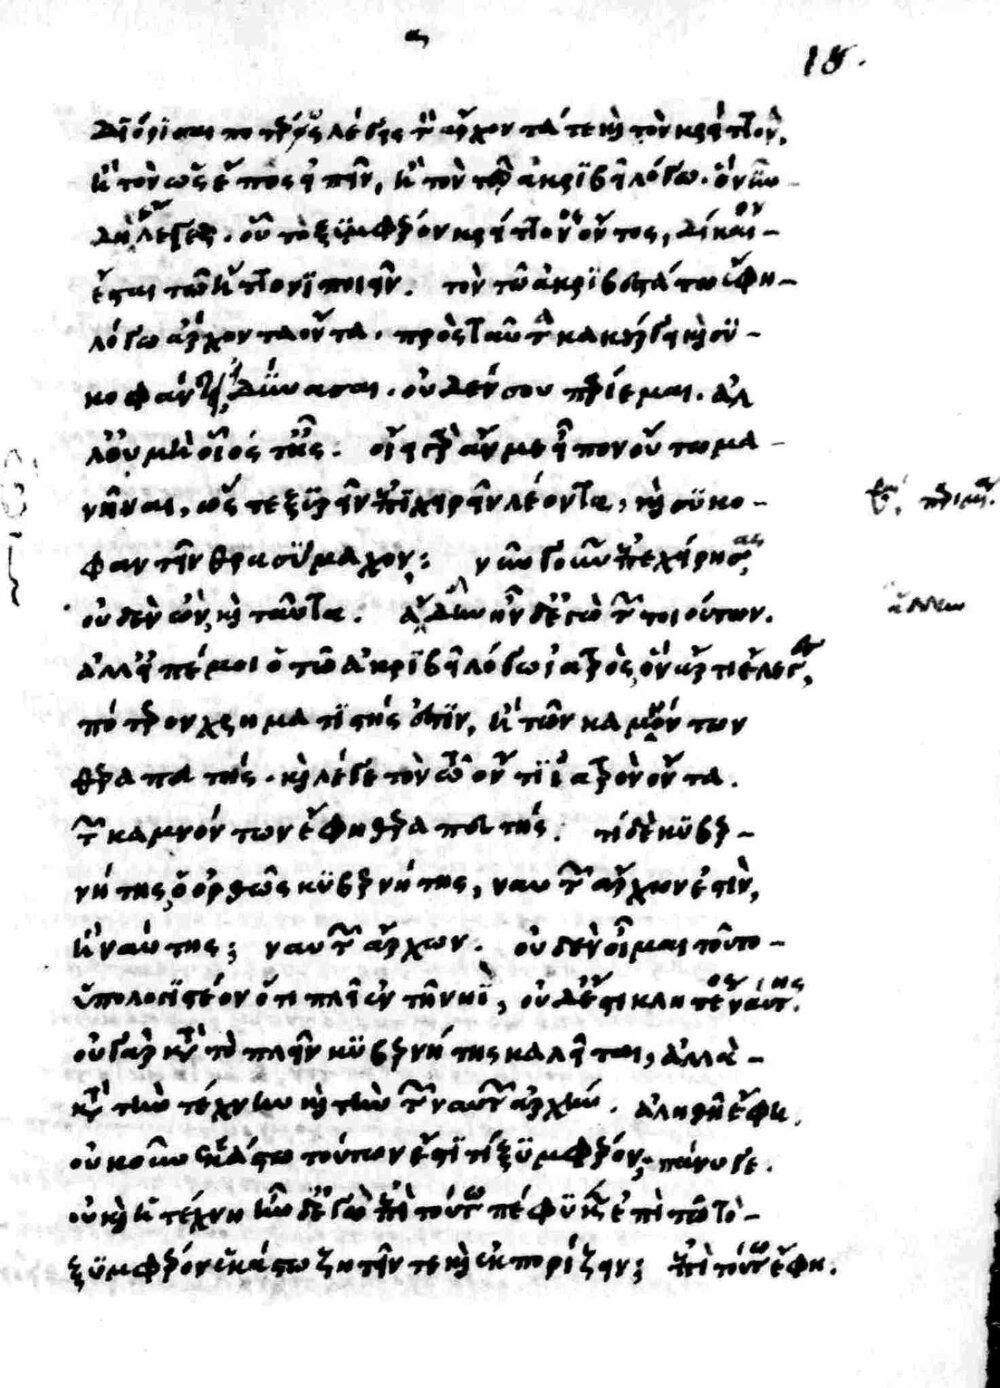 Διόρισαι ποτέρως λέγεις τὸν ἄρχοντά τε καὶ τὸν κρείττον,
ἢ τὸν ὡς ἔπος εἰπεῖν, ἢ τὸν τῷ ἀκριβεῖ λόγῳ. ὃν νῦν
δὴ ἔλεγες. οὗ τὸ ξυμφέρον κρείττονος ὄντος, δίκαιον
ἔσται τῷ ἥττονι ποιεῖν. τὸν τῷ ἀκριβεστάτῳ ἔφη
λόγῳ ἄρχοντα ὄντα. πρὸς ταῦτα κακούργει καὶ συ-
κοφάντει, εἴ τι δύνασαι. οὐδέν σου παρίεμαι. ἀλ
λ' οὐ μὴ οἷός τ' ᾖς. οἴει γὰρ ἄν με εἶπον οὕτω μα-
νῆναι, ὥστε ξυρεῖν ἐπιχειρεῖν λέοντα, καὶ συκο-
φαντεῖν θρασύμαχον; νῦν γοῦν ἐπεχείρησας,
οὐδὲν ὤν, καὶ ταῦτα. ἅδην ἦν δ' ἐγὼ τῶν τοιούτων.
ἀλλ' εἰπέ μοι ὁ τῷ ἀκριβεῖ λόγῳ ἰατρὸς, ὃν ἄρτι ἔλεγες,
πότερον χρηματιστής ἐστιν, ἢ τῶν καμνόντων
θεραπευτής. καὶ λέγε τὸν τῷ ὄντι ἰατρὸν ὄντα.
τῶν καμνόντων ἔφη θεραπευτής. τί δὲ κυβερ-
νήτης, ὁ ὀρθῶς κυβερνήτης, ναυτῶν ἄρχων ἐστὶν,
ἢ ναύτης; ναυτῶν ἄρχων. οὐδὲν οἶμαι τοῦτο
ὑπολογιστέον ὅτι πλεῖ ἐν τῇ νηῒ, οὐδ' ἔστι κλητέος ναύτης.
οὐ γὰρ κατὰ τὸ πλεῖν κυβερνήτης καλεῖται, ἀλλὰ
κατὰ τὴν τέχνην καὶ τὴν τῶν ναυτῶν ἀρχήν. ἀληθῆ ἔφη.
οὐκοῦν ἑκάστῳ τούτων ἔστι τί ξυμφέρον; πάνυ γε.
οὐ καὶ ἡ τέχνη ἦν δ' ἐγὼ ἐπὶ τούτῳ πέφυκεν ἐπὶ τῷ τὸ
ξυμφέρον ἑκάστῳ ζητεῖν τε καὶ ἐκπορίζειν; ἐπὶ τούτῳ ἔφη.